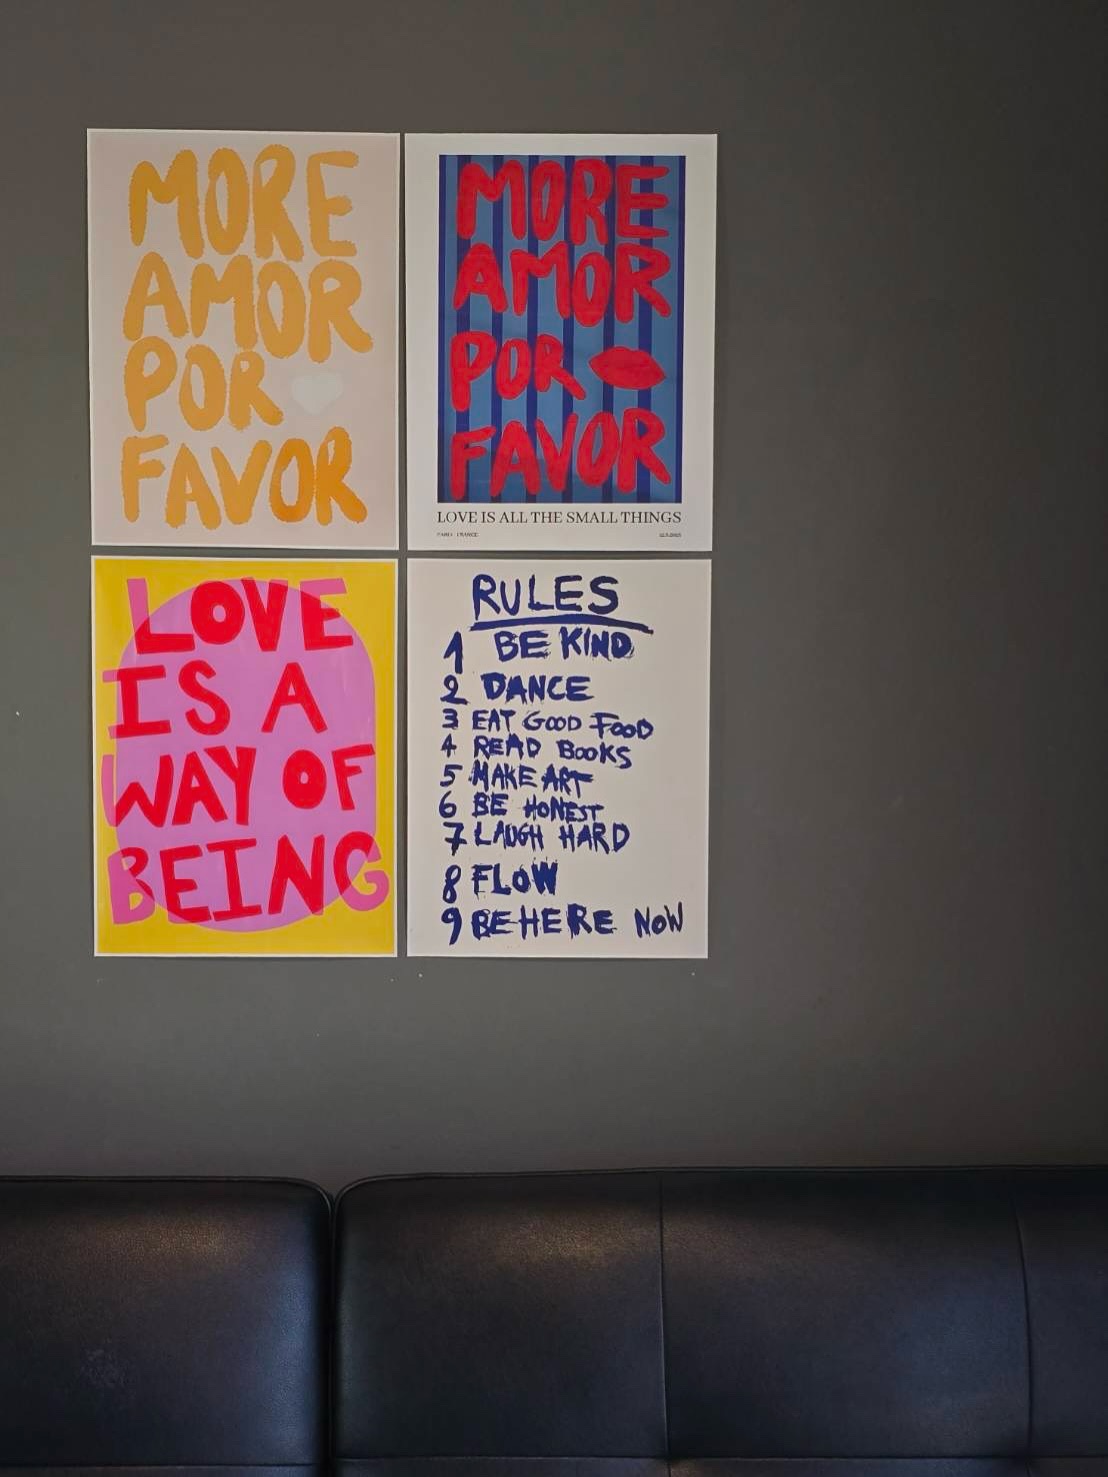 MORE
AMOR
POR
FAVOR
MORE
AMOR
POR
FAVOR
LOVE IS ALL THE SMALL THINGS
PARIS FRANCE
LOVE
IS A
WAY OF
BEING
RULES
1 BE KIND
2 DANCE
3 EAT GOOD FOOD
4 READ BOOKS
5 MAKE ART
6 BE HONEST
7 LAUGH HARD
8 FLOW
9 BE HERE NOW